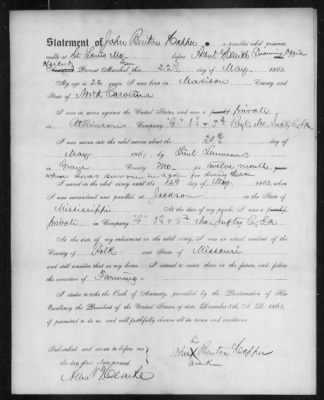 Statement of John Benton Hopper, a paroled rebel prisoner,
made at St. Louis Mo. before Albert H. Clarke Examining Officer
Provost Marshal this 22nd day of May 1865
My age is years I was born in Madison County and
State of North Carolina
I was in arms against the United States, and was a private
in Company "C" 1st & 5th Regt. Mo. Infty C.S.A.
I was sworn into the rebel service about the 20th
day of
May 1861, by
in County Mo. for twelve months
when I was sworn in again for during the war
I served in the rebel army until the day of May 1865, when
I was surrendered and paroled at Jackson in the State of
Mississippi At the date of my parole, I was a
private in Company "C" 1st & 5th Mo. Infty C.S.A
At the date of my enlistment in the rebel army, I was an actual resident of the
County of Polk and State of Missouri
and still consider that as my home. I intend to reside there in the future, and follow
the vocation of Farming.
I desire to take the Oath of Amnesty, provided by the Proclamation of His
Excellency the President of the United States, of date December 8th, A. D. 1863,
if permitted to do so, and will faithfully observe all its terms and conditions.
Subscribed and sworn to before me
the day first above named.
Albert H. Clarke
his
John X Benton Hopper
mark